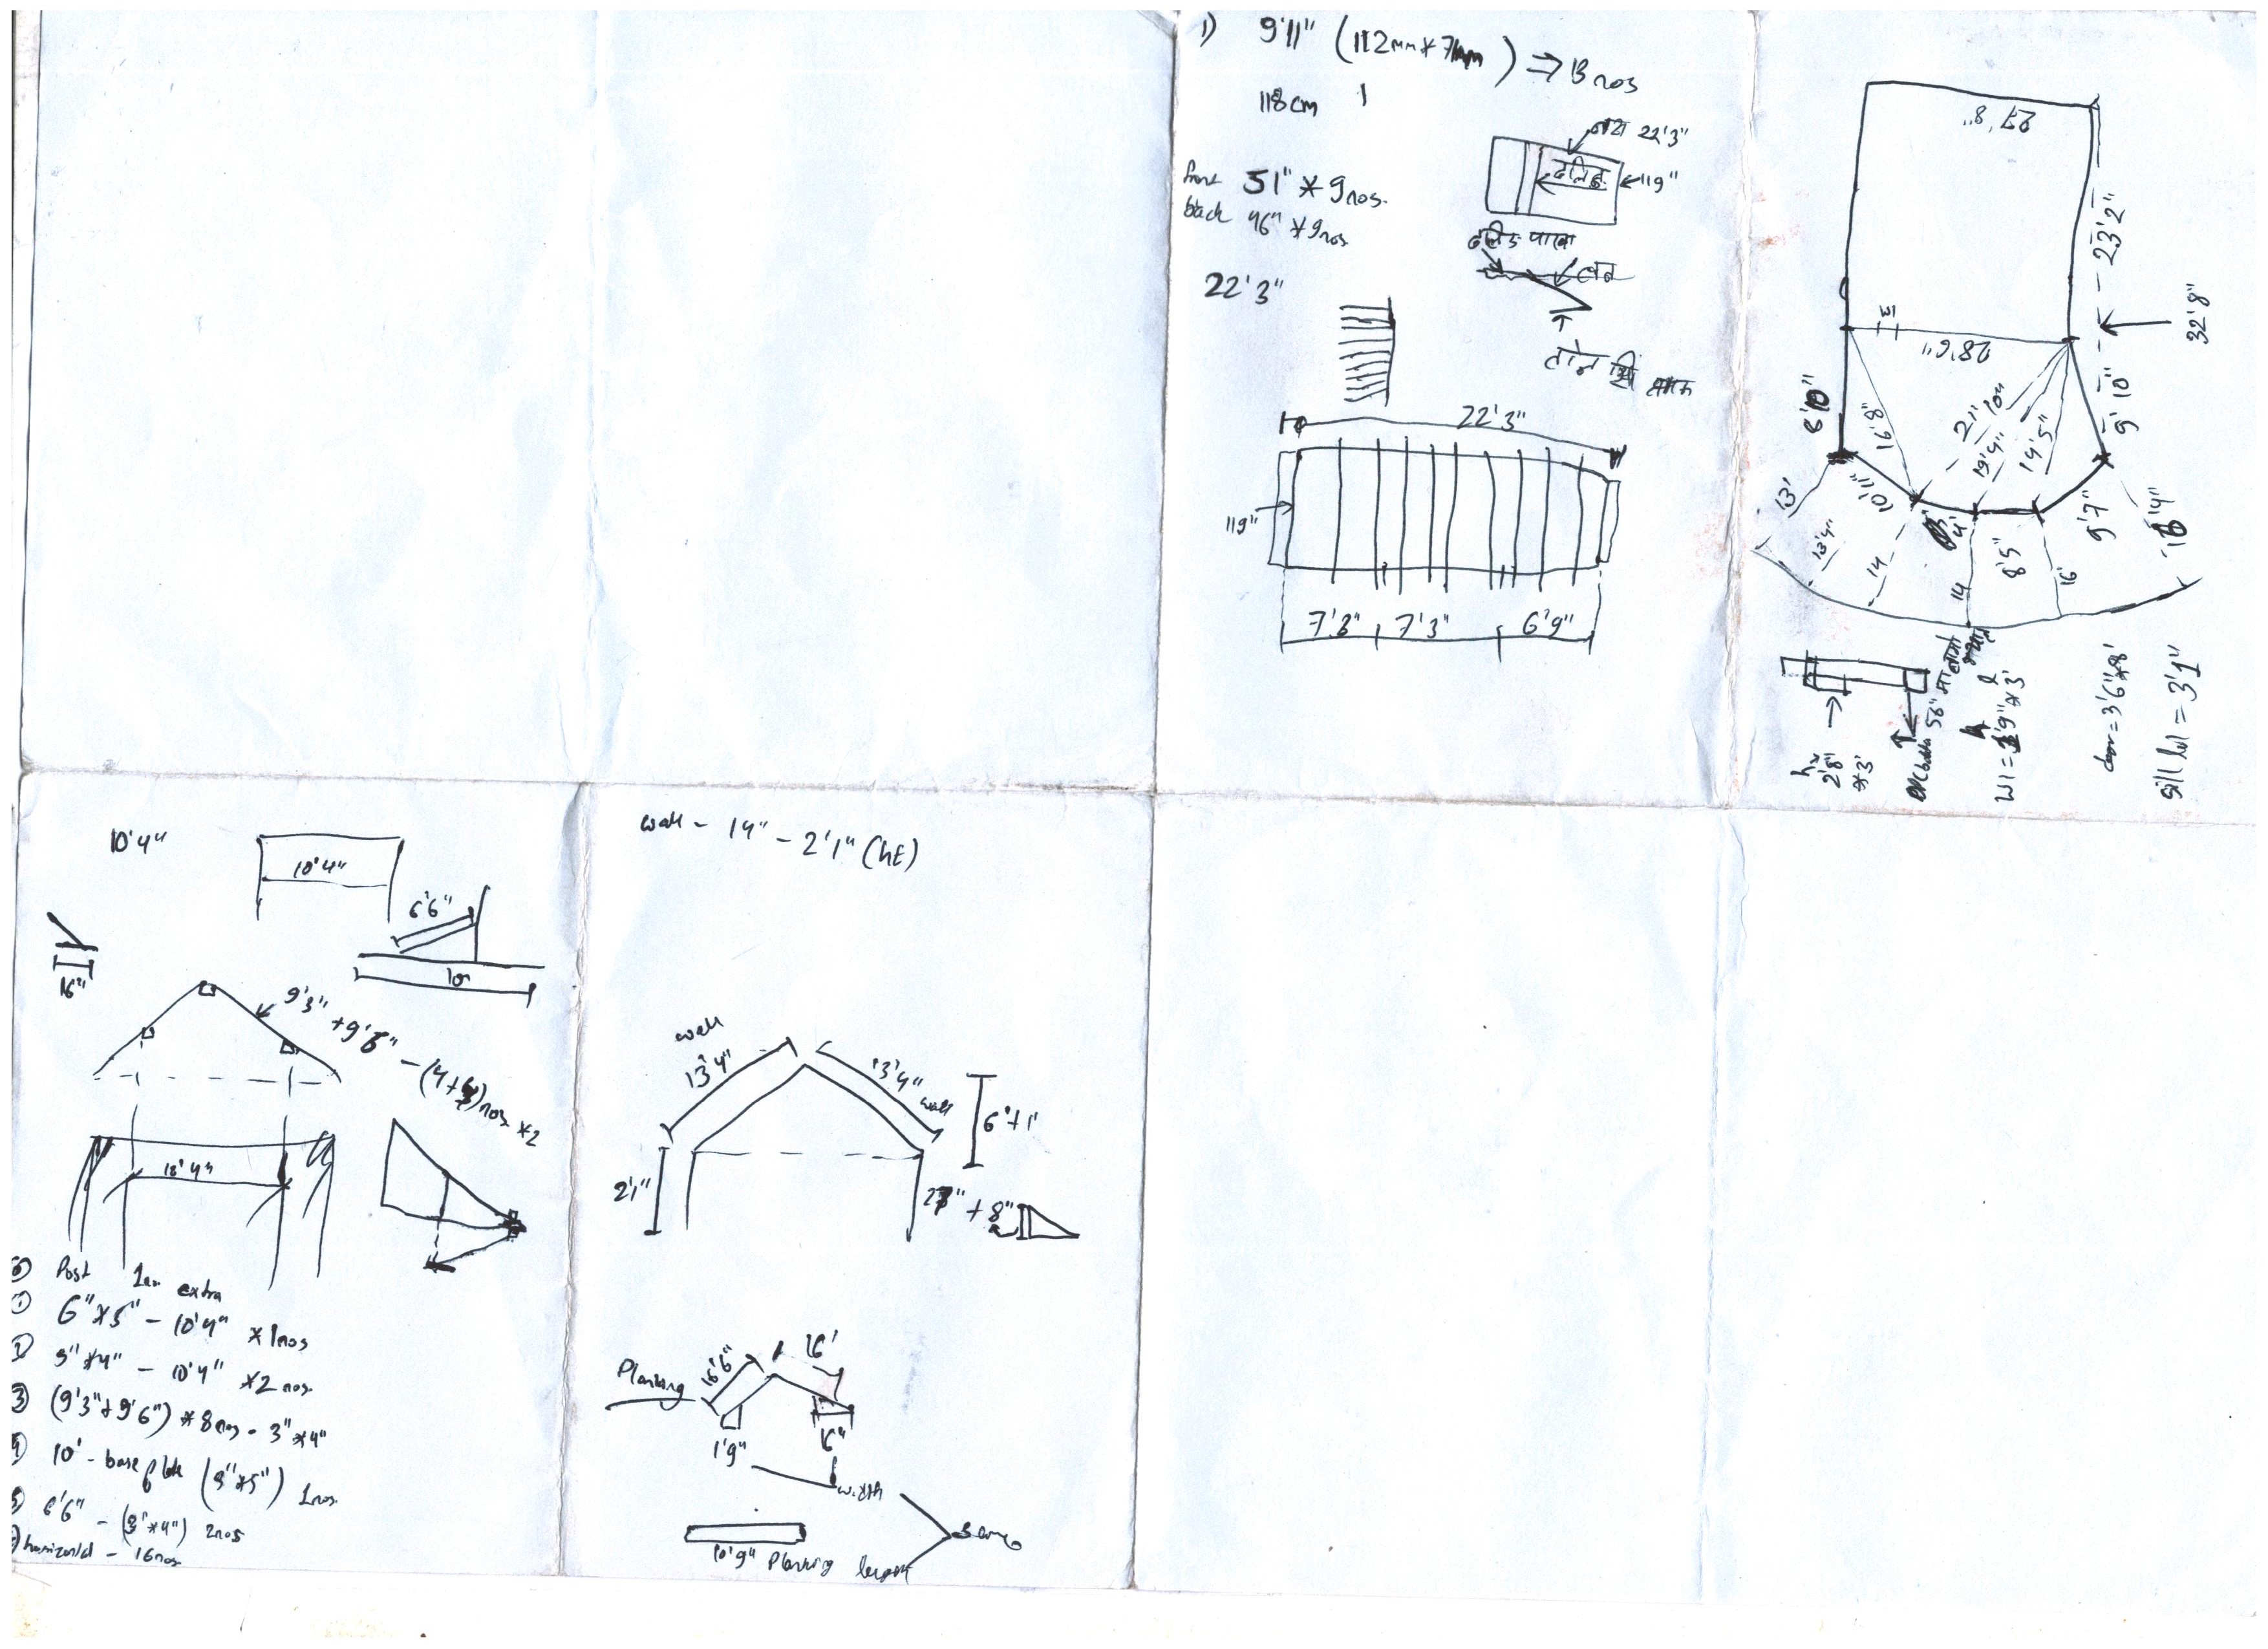 1) 9'11" (112mm*71mm) ⇒ 13 nos
118cm 1
front 51" * 9nos.
back 46" * 9nos
22'3"
22'3"
119"
22'3"
119"
7'3"
6'9"
27'8"
23'2"
32'8"
28'6"
9'10"
16'8"
21'
10"
19'4"
14'5"
10'11"
13'
13'4"
14
14
8'5"
16'
9'7"
h
2'8"
*3'
56"
door = 3'6"*8'
sill lvl = 3'1"
10'4"
10'4"
6'6"
10'
16"
9'3" +9'6" - (4+4)nos *2
10'4"
Post 1nos extra
① 6"*5" - 10'4" *1nos
5"*4" - 10'4" *2 nos.
③ (9'3"+9'6") * 8nos - 3"*4"
10' - base plate (3"*5") 1nos.
6'6" - (3"*4") 2nos
horizontal - 16nos
wall - 14" - 2'1" (ht)
wall
13'4"
13'4"
wall
6'+1'
2'1"
+ 8"
Planking
16'6"
16'
1'9"
16"
width
10'9" Planking length
same